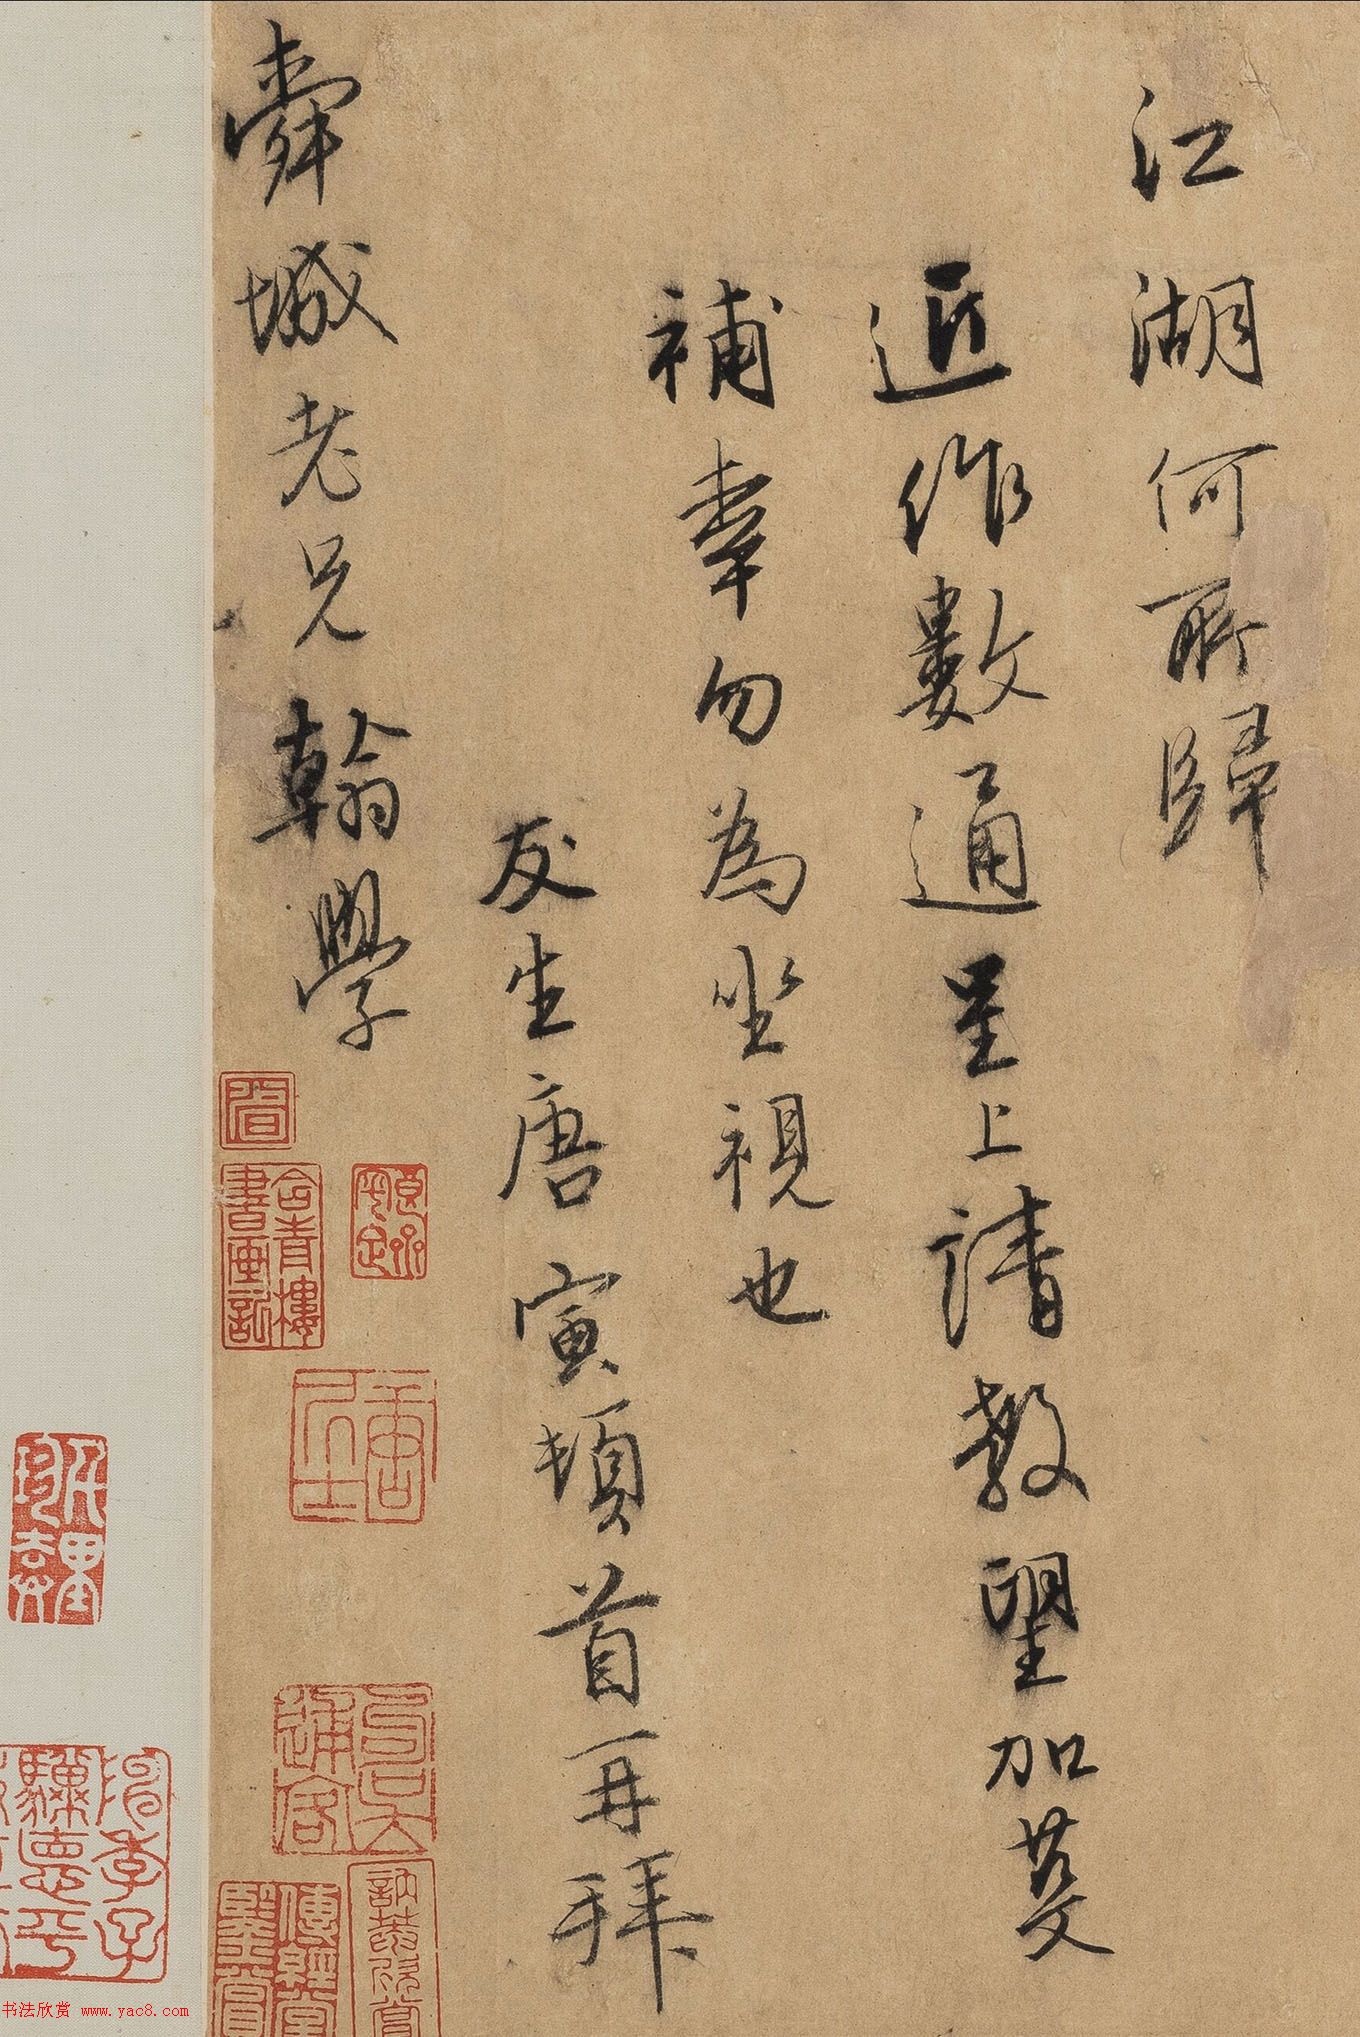 江湖何所歸
近作數通呈上請教望加芟
補幸勿為坐視也
友生唐寅頓首再拜
舜城老兄翰學
書法欣赏 www.yac8.com